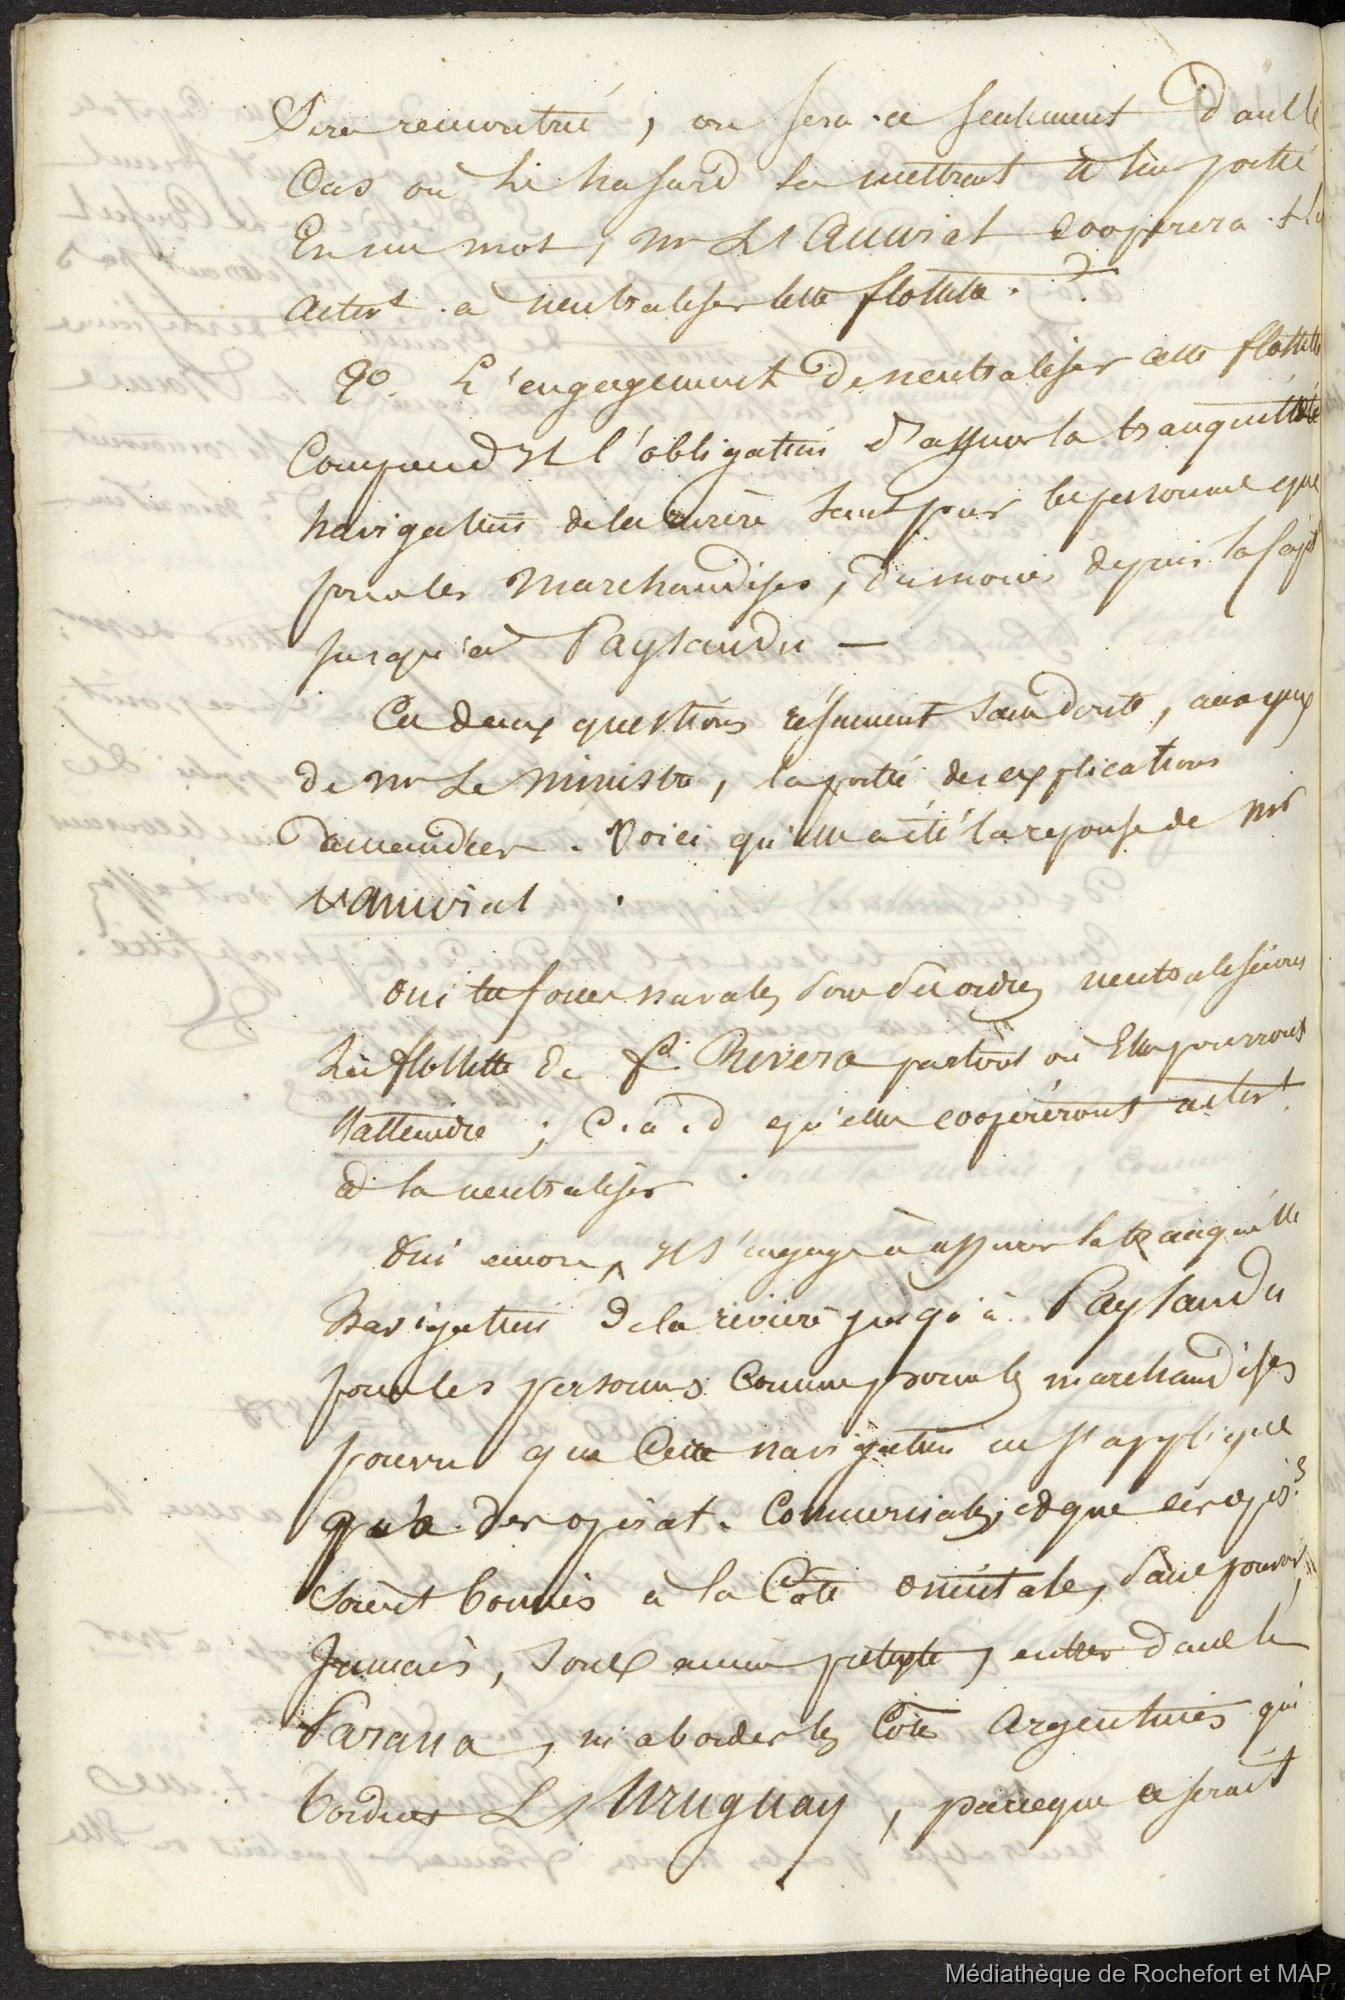 Sera rencontrée, ou sera-ce seulement dans le
Cas où le hasard la mettrait à leur portée
En un mot, Mr L'Amiral coopérera-t-il
activt. à neutraliser cette flottille. ?
2o. L'engagement de neutraliser cette flottille
Comprend-il l'obligation d'assurer la tranquille
navigation de la rivière tant pour le personnel que
pour les Marchandises, du moins depuis
jusqu'à Paysandu —
Ces deux questions résument sans doute, aux yeux
de Mr Le Ministre, la portée des explications
demandées. Voici qu'elle a été la réponse de Mr
L'Amiral.
Oui les forces navales sous ses ordres neutraliseront
La flottille de f. Rivera partout où Elles pourront
l'atteindre ; C. à. d qu'elles coopéreront activt.
à la neutraliser
Oui encore, il s'engage à assurer la tranquille
Navigation de la rivière jusqu'à Paysandu
pour les personnes Comme pour les marchandises
pourvu que Cette navigation ne s'applique
qu'à des opérat. Commerciales, et que ces opérs
soient bornées à la Côte orientale, sans pouvoir,
Jamais, sous aucun prétexte, entrer dans le
Parana, ni aborder les Côtes Argentines qui
bordent L'Uruguay, parceque ce serait
Médiathèque de Rochefort et MAP